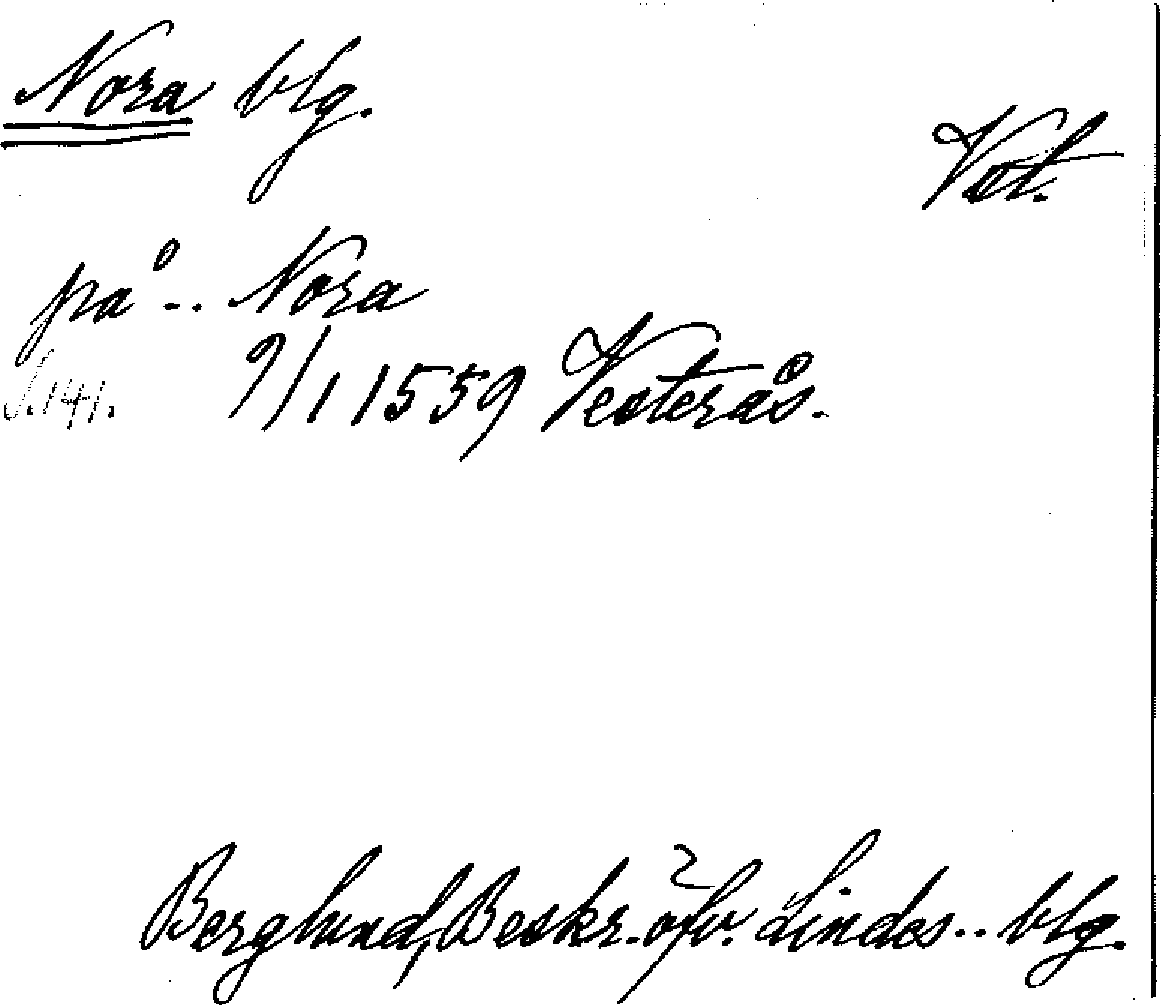 Nora blg.
Vst.
på .. Nora
S. 141. 9/1 1559 Vesterås.
Berglund, Beskr. öfv. Lindes .. blg.